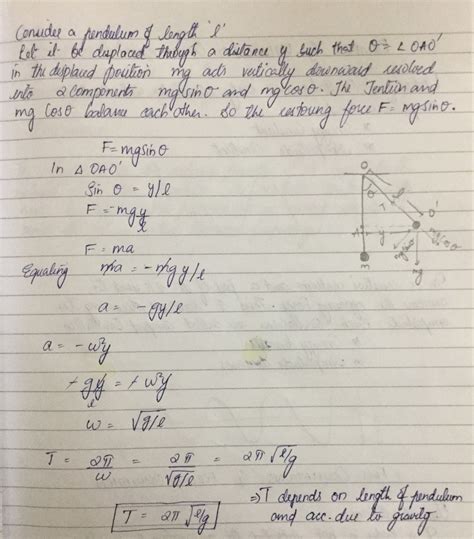 Consider a pendulum of length 'l'
Let it be displaced through a distance y such that θ = ∠OAO'
in the displaced position mg acts vertically downward resolved
into 2 components mg sinθ and mg cosθ. The Tension and
mg Cosθ balance each other. So the restoring force F = mg sinθ.
F = mg sinθ
In △ OAO'
Sin θ = y/l
F = -mg y/l
F = ma
Equaling ma = -mg y/l
a = - gy/l
a = - ω²y
+ gy/l = + ω²y
ω = √g/l
T = 2π/ω = 2π/√g/l = 2π √l/g
T = 2π √l/g
⇒ T depends on length of pendulum
and acc. due to gravity
O
θ
l
T
O'
y
mg cosθ